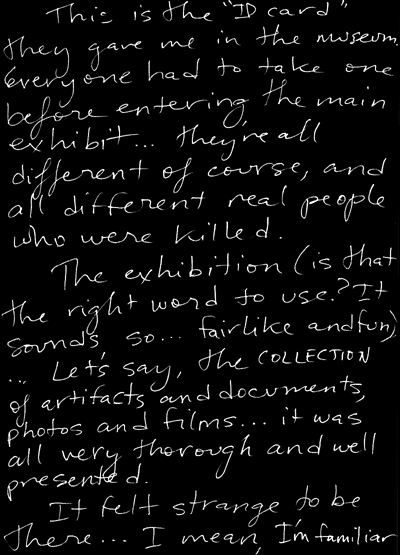 This is the "ID card"
they gave me in the museum.
Everyone had to take one
before entering the main
exhibit... they're all
different of course, and
all different real people
who were killed.
The exhibition (is that
the right word to use? It
sounds so... fairlike and fun)
... Let's say, the COLLECTION
of artifacts and documents,
photos and films... it was
all very thorough and well
presented.
It felt strange to be
there... I mean, I'm familiar